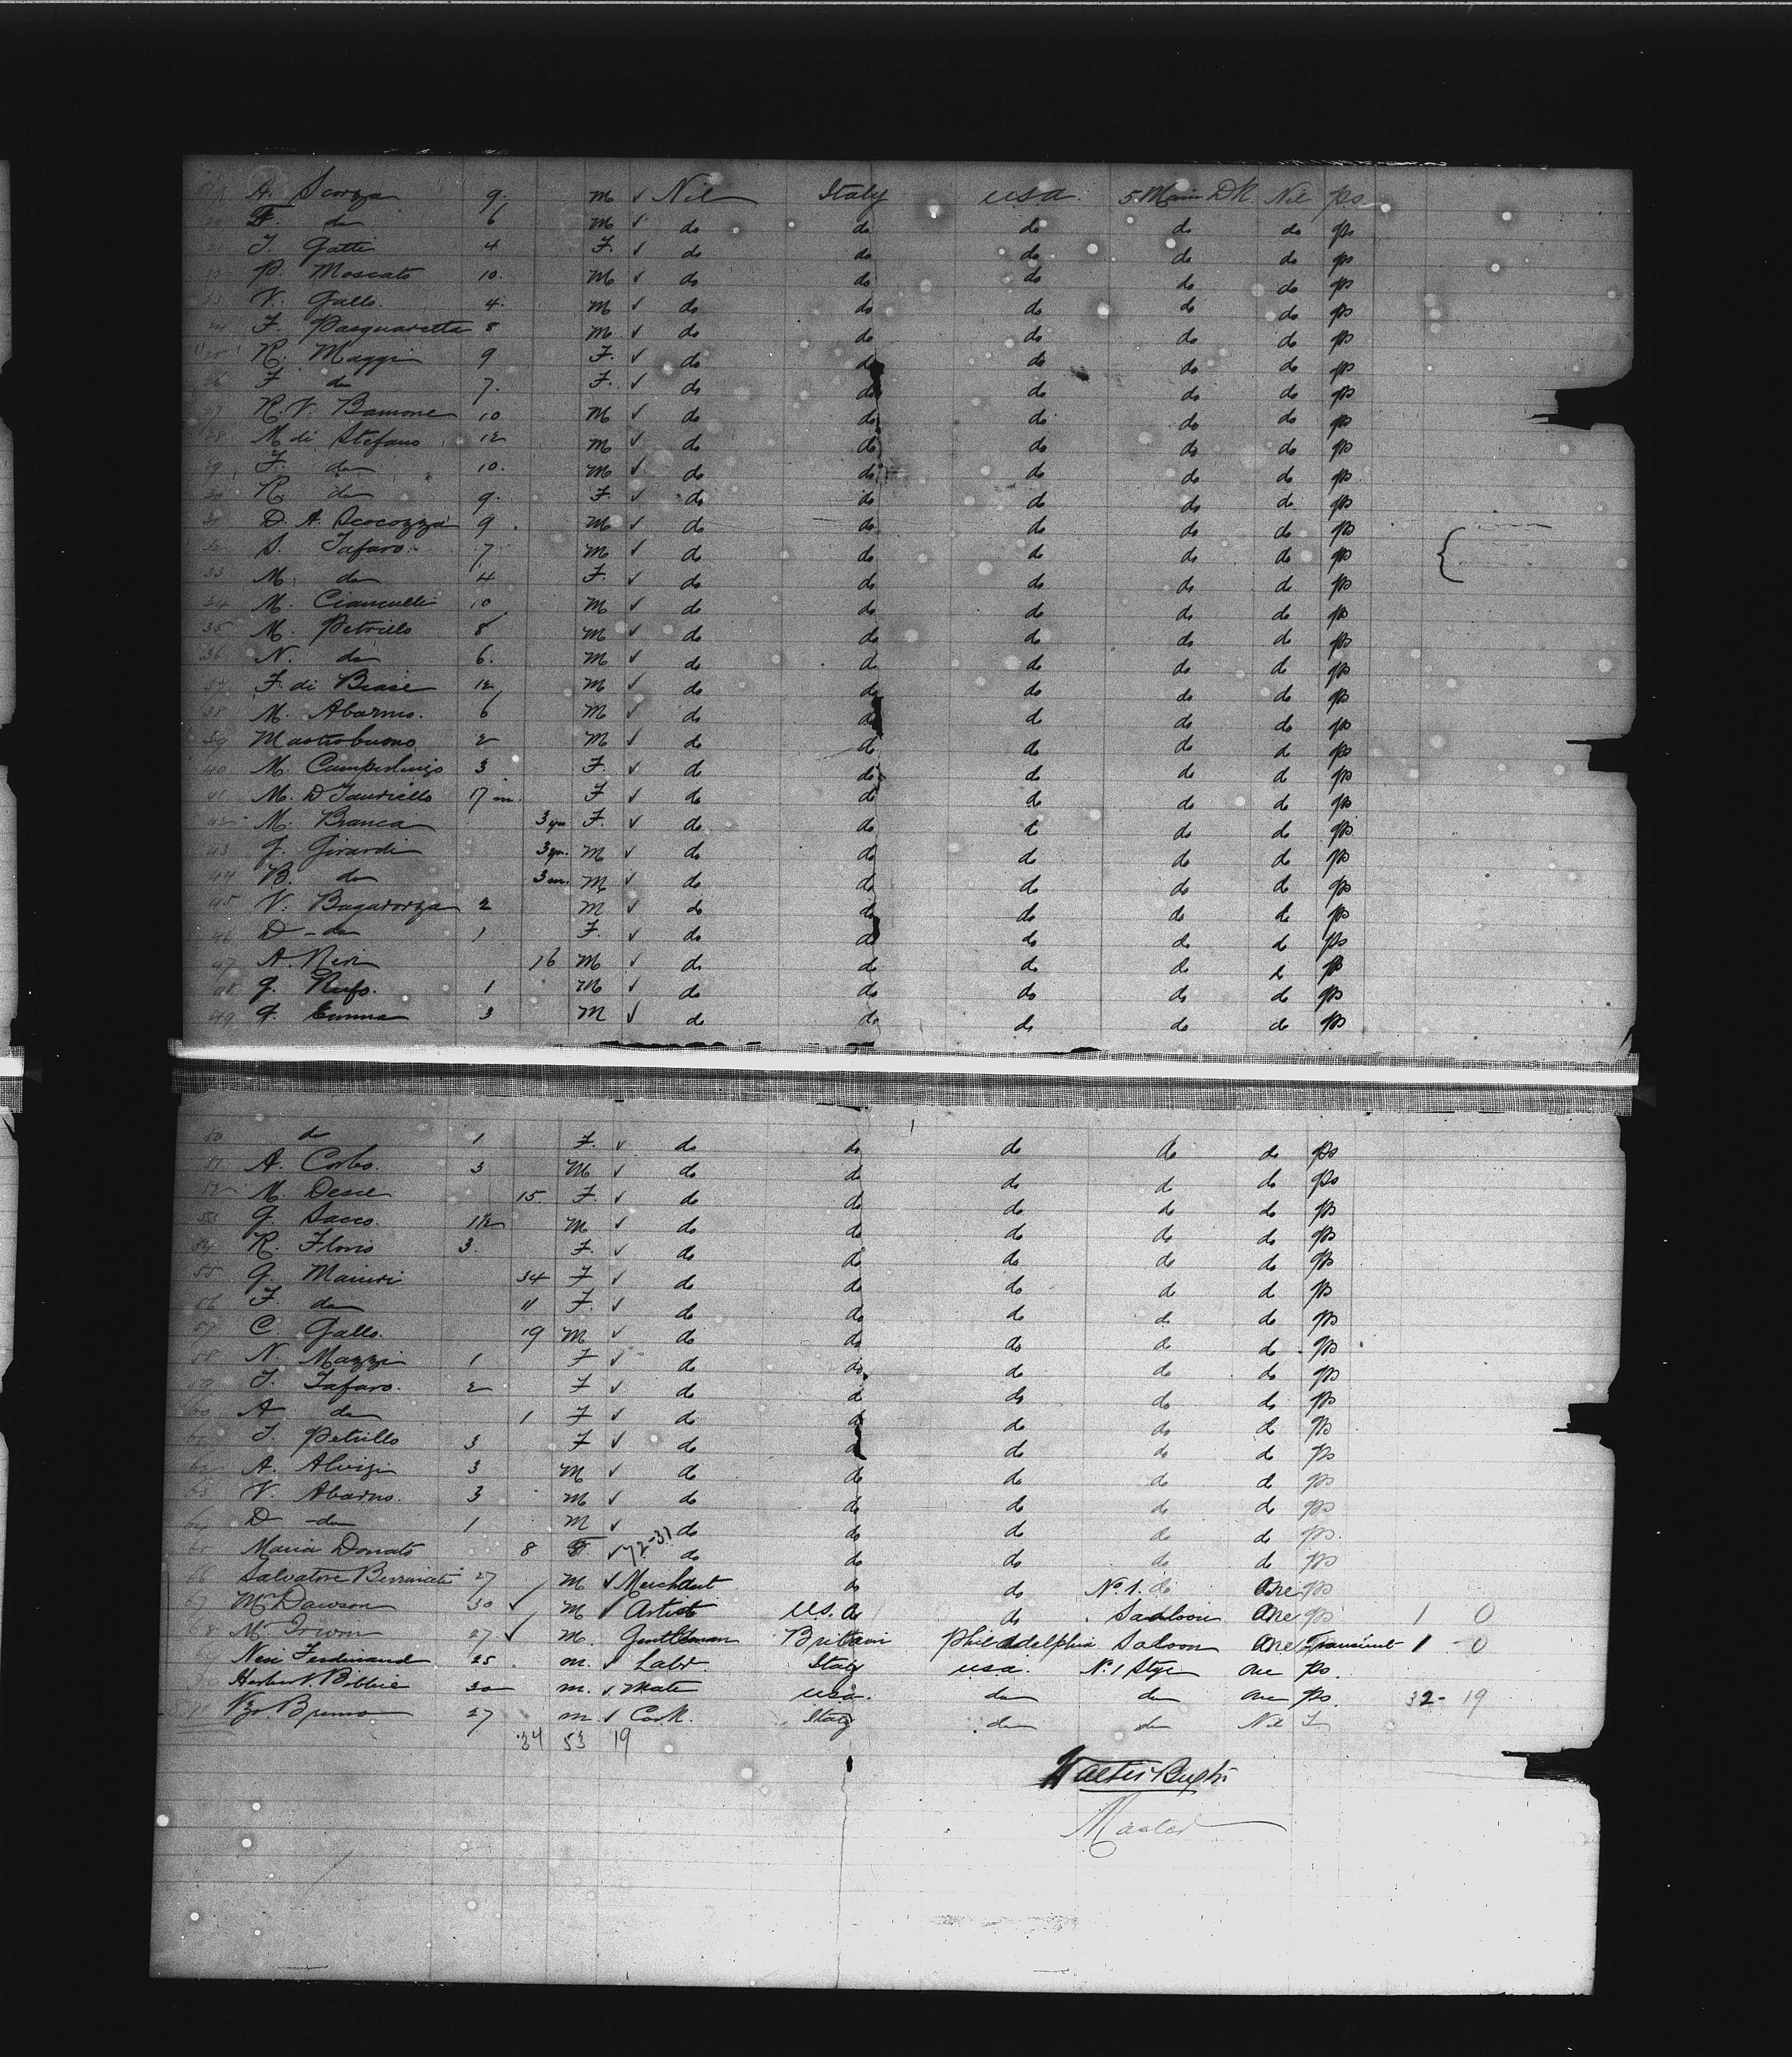 A. Scorza 9. M ✓ Nil Italy USA. 5 Main DK. Nil ps
F. do 6 M ✓ do do do do do ps
T. Gatti 4 F. ✓ do do do do do ps
P. Moscato 10. M ✓ do do do do do ps
V. Gallo. 4. M ✓ do do do do do ps
24 F. Pasquaretta 8 M ✓ do do do do do ps
25 R. Maggi 9 F. ✓ do do do do do ps
26 F do 7. F. ✓ do do do do do ps
27 R. V. Bamone 10 M ✓ do do do do do ps
28 M di Stefano 12 M ✓ do do do do do ps
29 F. do 10. M ✓ do do do do do ps
30 R do 9. F. ✓ do do do do do ps
31 D. A. Scocozza 9. M ✓ do do do do do ps
32 S. Tafaro. 7 M ✓ do do do do do ps
33 M. do 4 F. ✓ do do do do do ps
34 M. Cianculli 10 M ✓ do do do do do ps
35 M. Petrillo 8 M ✓ do do do do do ps
36 N. do 6. M ✓ do do do do do ps
37 F. di Biase 12 M ✓ do do do do do ps
38 M. Abarno. 6 M ✓ do do do do do ps
39 Mastrobuono 2 M ✓ do do do do do ps
40 M. 3 F. ✓ do do do do do ps
41 M. D 17 m. F ✓ do do do do do ps
42 M. Branca 3 F. ✓ do do do do do ps
43 G. Girardi 3 M ✓ do do do do do ps
44 B. do 3 m. M ✓ do do do do do ps
45 V. Bagarozza 2 M ✓ do do do do do ps
46 D - do 1 F. ✓ do do do do do ps
47 A. Neri 16 M ✓ do do do do do ps
48 G. Rufo. 1 M ✓ do do do do do ps
49 G. Emma 3 M ✓ do do do do do ps
50 do 1 F. ✓ do do do do do ps
51 A. Corbo. 3 M ✓ do do do do do ps
52 M. 15 F. ✓ do do do do do ps
53 G. Sacco. 1½ M ✓ do do do do do ps
54 R. Florio 3. F. ✓ do do do do do ps
55 G. Mainiri 34 F ✓ do do do do do ps
56 F. do 11 F. ✓ do do do do do ps
57 C. Gallo. 19 M ✓ do do do do do ps
58 N Mazzi 1 F ✓ do do do do do ps
59 T. Tafaro. 2 F ✓ do do do do do ps
60 A do 1 F ✓ do do do do do ps
61 T. Petrillo 3 F ✓ do do do do do ps
62 A. Aloizi 3 M ✓ do do do do do ps
63 V. Abarno. 3 M ✓ do do do do do ps
64 D - do 1 M ✓ do do do do do ps.
65 Maria Donato 8 F. ✓ 72-31 do do do do do ps
66 Salvatore 27 M ✓ Merchant do do No 1. do One ps
67 M. Dawson 30 ✓ M ✓ Artist U.S.A do Saloon One ps 1 0
68 M. 27 ✓ M. Gentleman Britain Philadelphia Saloon One Transient 1 - 0
69 Neri Ferdinand 25. m. ✓ Labr. Italy USA. No. 1 Stge One ps.
70 Herbert V. 30 m. ✓ Mate USA. do do One ps. 32 - 19
71 Bruno 27 m. ✓ Cook. Italy do do Nil T
34 53 19
Walter
Master